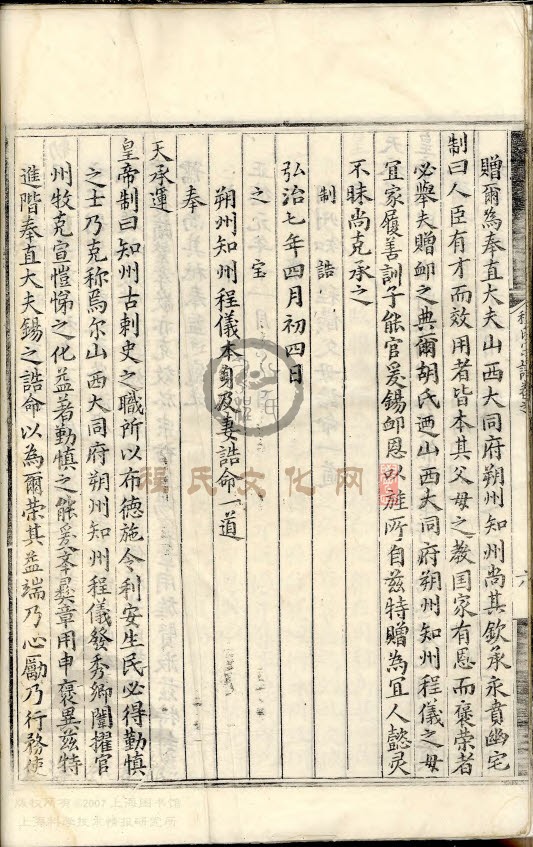 贈爾為奉直大夫山西大同府朔州知州尚其欽承永賁幽宅
制曰人臣有才而效用者皆本其父母之教国家有恩而褒荣者
必舉夫贈卹之典爾胡氏廼山西大同府朔州知州程儀之母
宜家履善訓子能官爰錫卹恩以旌所自茲特贈為宜人懿灵
不昧尚克承之
制誥
弘治七年四月初四日
之宝
朔州知州程儀本身及妻誥命一道
奉
天承運
皇帝制曰知州古刺史之職所以布德施令利安生民必得勤慎
之士乃克称焉尔山西大同府朔州知州程儀發秀卿闈擢官
州牧克宣愷悌之化益著勤慎之能爰举彛章用申褒異茲特
進階奉直大夫錫之誥命以為爾荣其益端乃心勵乃行務使
六
程氏文化网
版权所有©2007上海图书馆
上海科学技术情报研究所